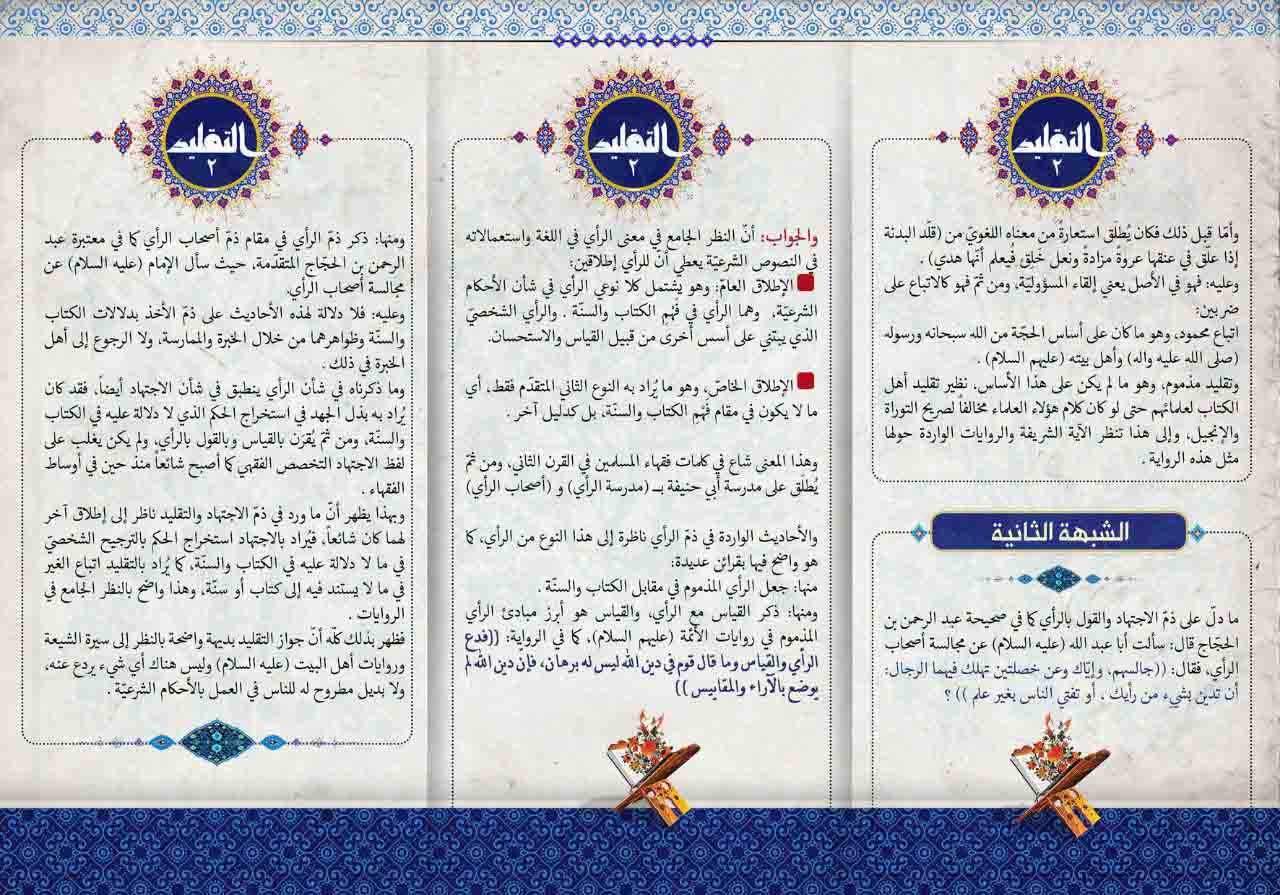 التقليد
٢
وأمّا قبل ذلك فكان يُطلَق استعارةً من معناه اللغويّ من (قلّد البدنة
إذا علّق في عنقها عروة مزادة ونعل خَلِق فيُعلم أنّها هدي) .
وعليه: فهو في الأصل يعني إلقاء المسؤوليّة، ومن ثمّ فهو كالاتباع على
ضربين:
اتباع محمود، وهو ما كان على أساس الحجّة من الله سبحانه ورسوله
(صلى الله عليه واله) وأهل بيته (عليهم السلام) .
وتقليد مذموم، وهو ما لم يكن على هذا الأساس، نظير تقليد أهل
الكتاب لعلمائهم حتى لو كان كلام هؤلاء العلماء مخالفاً لصريح التوراة
والإنجيل، وإلى هذا تنظر الآية الشريفة والروايات الواردة حولها
مثل هذه الرواية .
الشبهة الثانية
ما دلّ على ذمّ الاجتهاد والقول بالرأي كما في صحيحة عبد الرحمن بن
الحجّاج قال: سألت أبا عبد الله (عليه السلام) عن مجالسة أصحاب
الرأي، فقال: ((جالسهم، وإيّاك وعن خصلتين تهلك فيهما الرجال:
أن تدين بشيء من رأيك . أو تفتي الناس بغير علم )) ؟
التقليد
٢
والجواب: أنّ النظر الجامع في معنى الرأي في اللغة واستعمالاته
في النصوص الشرعيّة يعطي أنّ للرأي إطلاقين:
الإطلاق العامّ: وهو يشتمل كلا نوعي الرأي في شأن الأحكام
الشرعيّة، وهما الرأي في فهْم الكتاب والسنّة . والرأي الشخصيّ
الذي يبتني على أسس أخرى من قبيل القياس والاستحسان.
الإطلاق الخاصّ، وهو ما يُراد به النوع الثاني المتقدّم فقط، أي
ما لا يكون في مقام فهْم الكتاب والسنّة، بل كدليل آخر .
وهذا المعنى شاع في كلمات فقهاء المسلمين في القرن الثاني، ومن ثمّ
يُطلَق على مدرسة أبي حنيفة بــ (مدرسة الرأي) و (أصحاب الرأي)
والأحاديث الواردة في ذمّ الرأي ناظرة إلى هذا النوع من الرأي، كما
هو واضح فيها بقرائن عديدة:
منها: جعل الرأي المذموم في مقابل الكتاب والسنّة .
ومنها: ذكر القياس مع الرأي، والقياس هو أبرز مبادئ الرأي
المذموم في روايات الأئمّة (عليهم السلام)، كما في الرواية: ((فدع
الرأي والقياس وما قال قوم في دين الله ليس له برهان، فإن دين الله لم
يوضع بالآراء والمقاييس ))
التقليد
٢
ومنها: ذكر ذمّ الرأي في مقام ذمّ أصحاب الرأي كما في معتبرة عبد
الرحمن بن الحجّاج المتقدّمة، حيث سأل الإمام (عليه السلام) عن
مجالسة أصحاب الرأي.
وعليه: فلا دلالة لهذه الأحاديث على ذمّ الأخذ بدلالات الكتاب
والسنّة وظواهرهما من خلال الخبرة والممارسة، ولا الرجوع إلى أهل
الخبرة في ذلك .
وما ذكرناه في شأن الرأي ينطبق في شأن الاجتهاد أيضاً، فقد كان
يُراد به بذل الجهد في استخراج الحكم الذي لا دلالة عليه في الكتاب
والسنّة، ومن ثمّ يُقرَن بالقياس وبالقول بالرأي، ولم يكن يغلب على
لفظ الاجتهاد التخصص الفقهي كما أصبح شائعاً منذ حين في أوساط
الفقهاء .
وبهذا يظهر أنّ ما ورد في ذمّ الاجتهاد والتقليد ناظر إلى إطلاق آخر
لهما كان شائعاً، فيُراد بالاجتهاد استخراج الحكم بالترجيح الشخصيّ
في ما لا دلالة عليه في الكتاب والسنّة، كما يُراد بالتقليد اتباع الغير
في ما لا يستند فيه إلى كتاب أو سنّة، وهذا واضح بالنظر الجامع في
الروايات .
فظهر بذلك كلّه أنّ جواز التقليد بديهة واضحة بالنظر إلى سيرة الشيعة
وروايات أهل البيت (عليه السلام) وليس هناك أي شيء يردع عنه،
ولا بديل مطروح له للناس في العمل بالأحكام الشرعيّة .